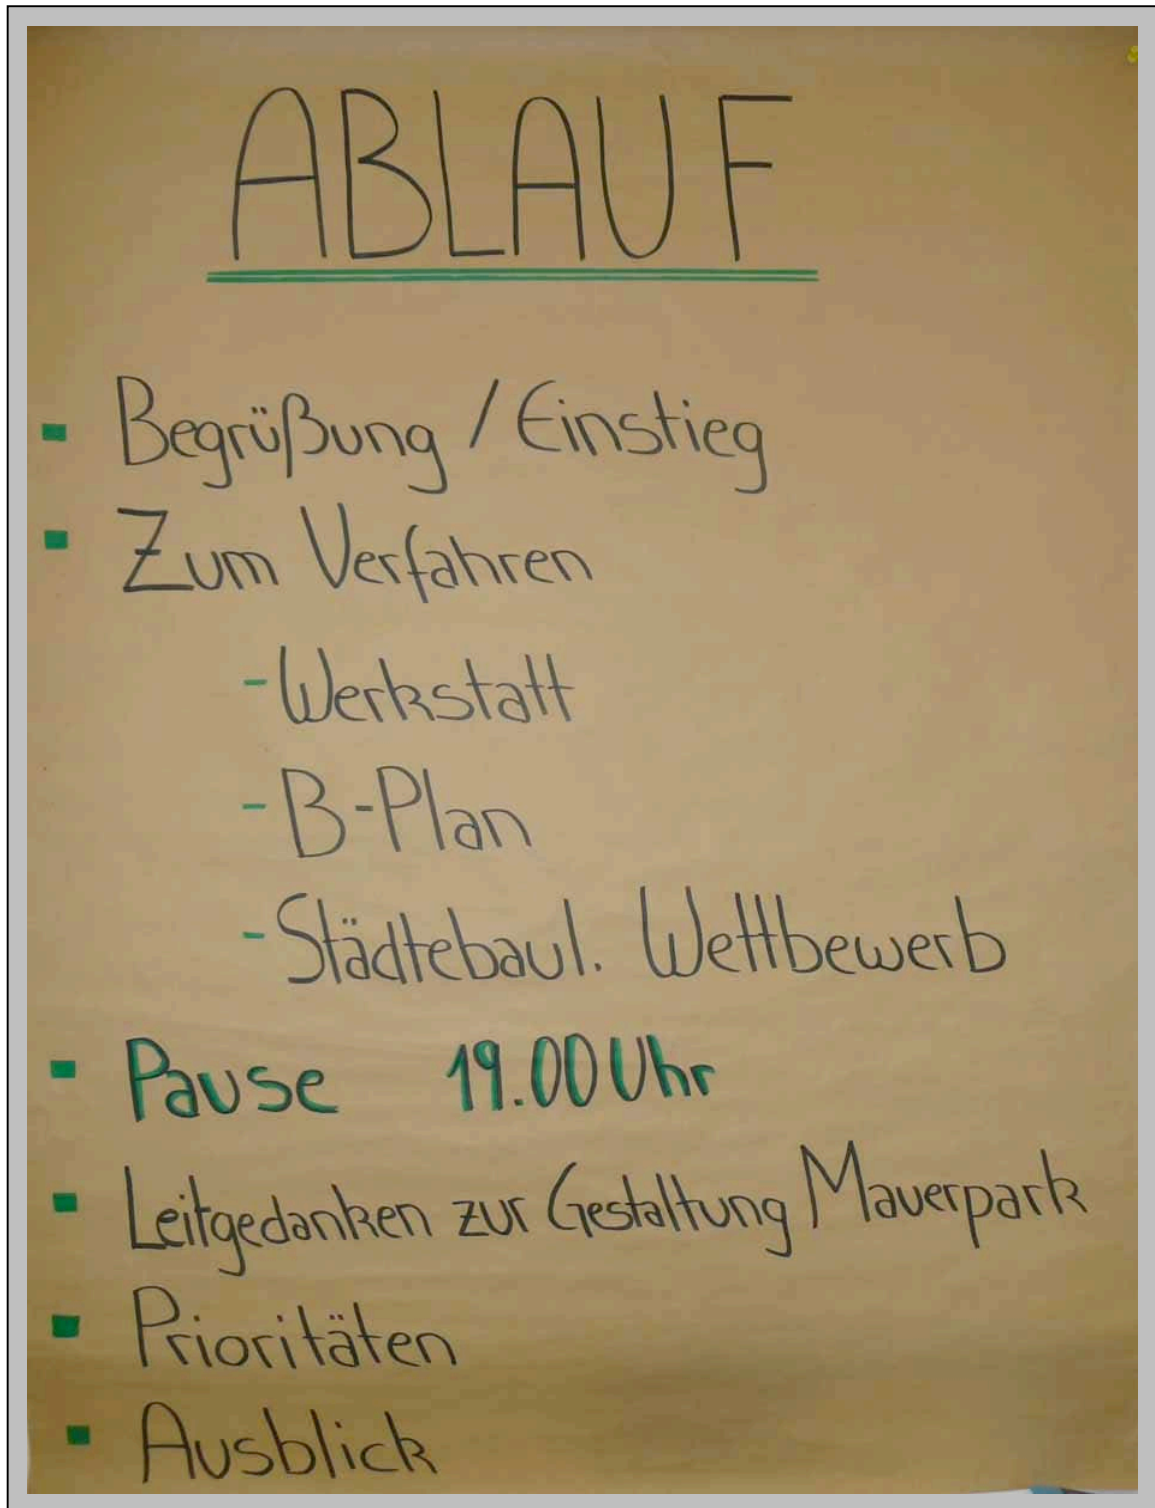 ABLAUF
- Begrüßung / Einstieg
- Zum Verfahren
- Werkstatt
- B-Plan
- Städtebaul. Wettbewerb
- Pause 19.00 Uhr
- Leitgedanken zur Gestaltung Mauerpark
- Prioritäten
- Ausblick